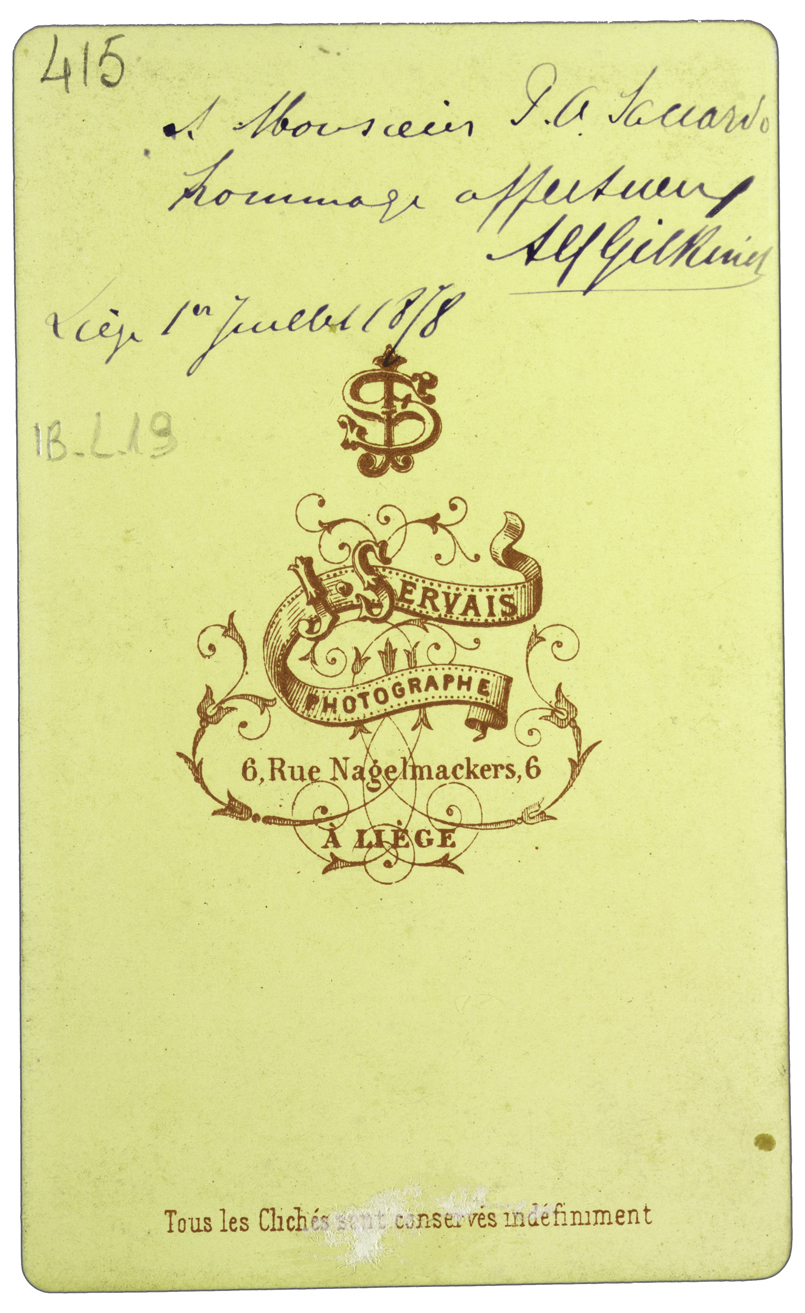 415
A Monsieur P. A. Saccardo
hommage affectueux
Alf Gilkinet
Liège 1er Juillet 1878
IB-L.19
J. SERVAIS
PHOTOGRAPHE
6, Rue Nagelmackers, 6
À LIÈGE
Tous les Clichés sont conservés indéfiniment